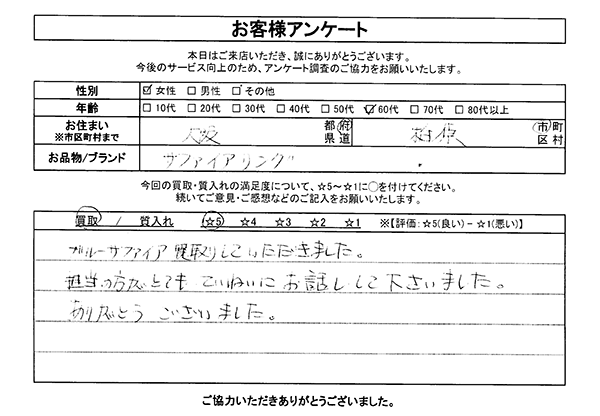 お客様アンケート
本日はご来店いただき、誠にありがとうございます。
今後のサービス向上のため、アンケート調査のご協力をお願いいたします。
性別 ☑女性 □男性 □その他
年齢 □10代 □20代 □30代 □40代 □50代 ☑60代 □70代 □80代以上
お住まい ※市区町村まで 大阪 都府県道 柏原 市町区村
お品物/ブランド サファイアリング
今回の買取・質入れの満足度について、☆5～☆1に○を付けてください。
続いてご意見・ご感想などのご記入をお願いいたします。
買取 / 質入れ ☆5 ☆4 ☆3 ☆2 ☆1 ※【評価:☆5(良い)－☆1(悪い)】
ブルーサファイア買取りしていただきました。
担当の方がとてもていねいにお話しして下さいました。
ありがとうございました。
ご協力いただきありがとうございました。